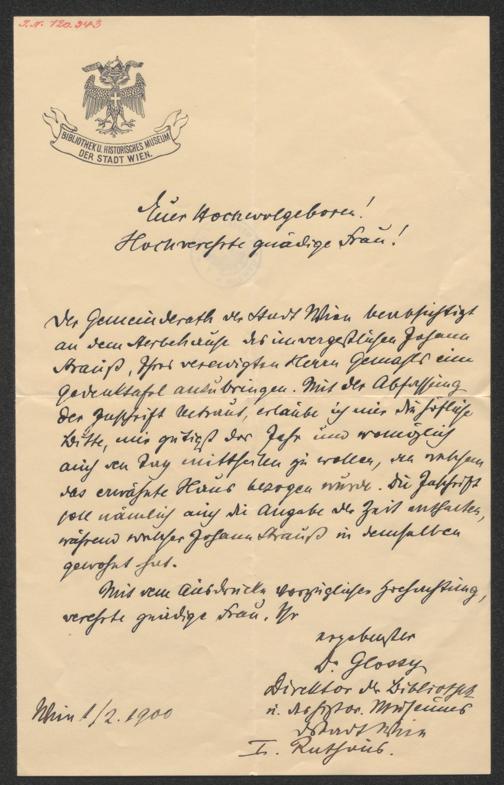 I.N. 120.243
BIBLIOTHEK U. HISTORISCHES MUSEUM
DER STADT WIEN.
Euer Hochwolgeboren!
Hochverehrte gnädige Frau!
Der Gemeinderath der Stadt Wien beabsichtigt
an dem Sterbehause des unvergeßlichen Johann
Strauß, Ihres verewigten Herrn Gemahls eine
Gedenktafel anzubringen. Mit der Abfassung
der Inschrift betraut, erlaube ich mir die höfliche
Bitte, mir gütigst das Jahr und womöglich
auch den Tag mittheilen zu wollen, an welchem
das erwähnte Haus bezogen wurde. Die Inschrift
soll nämlich auch die Angabe der Zeit enthalten,
während welcher Johann Strauß in demselben
gewohnt hat.
Mit dem Ausdrucke vorzüglicher Hochachtung,
verehrte gnädige Frau, Ihr
ergebenster
Dr. Glossy
Direktor der Bibliothek
u. des histor. Museums
d Stadt Wien
I. Rathaus.
Wien 1/2. 1900